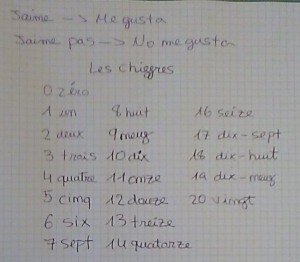 Jaime --> Me gusta
Jaime pas --> No me gusta
Les chiegres
0 zéro
1 un 8 huit 16 seize
2 deux 9 meuf 17 dix-sept
3 trais 10 dix 18 dix-huit
4 quatre 11 omze 19 dix-meuf
5 cinq 12 douze 20 vimgt
6 six 13 treize
7 sept 14 quatorze